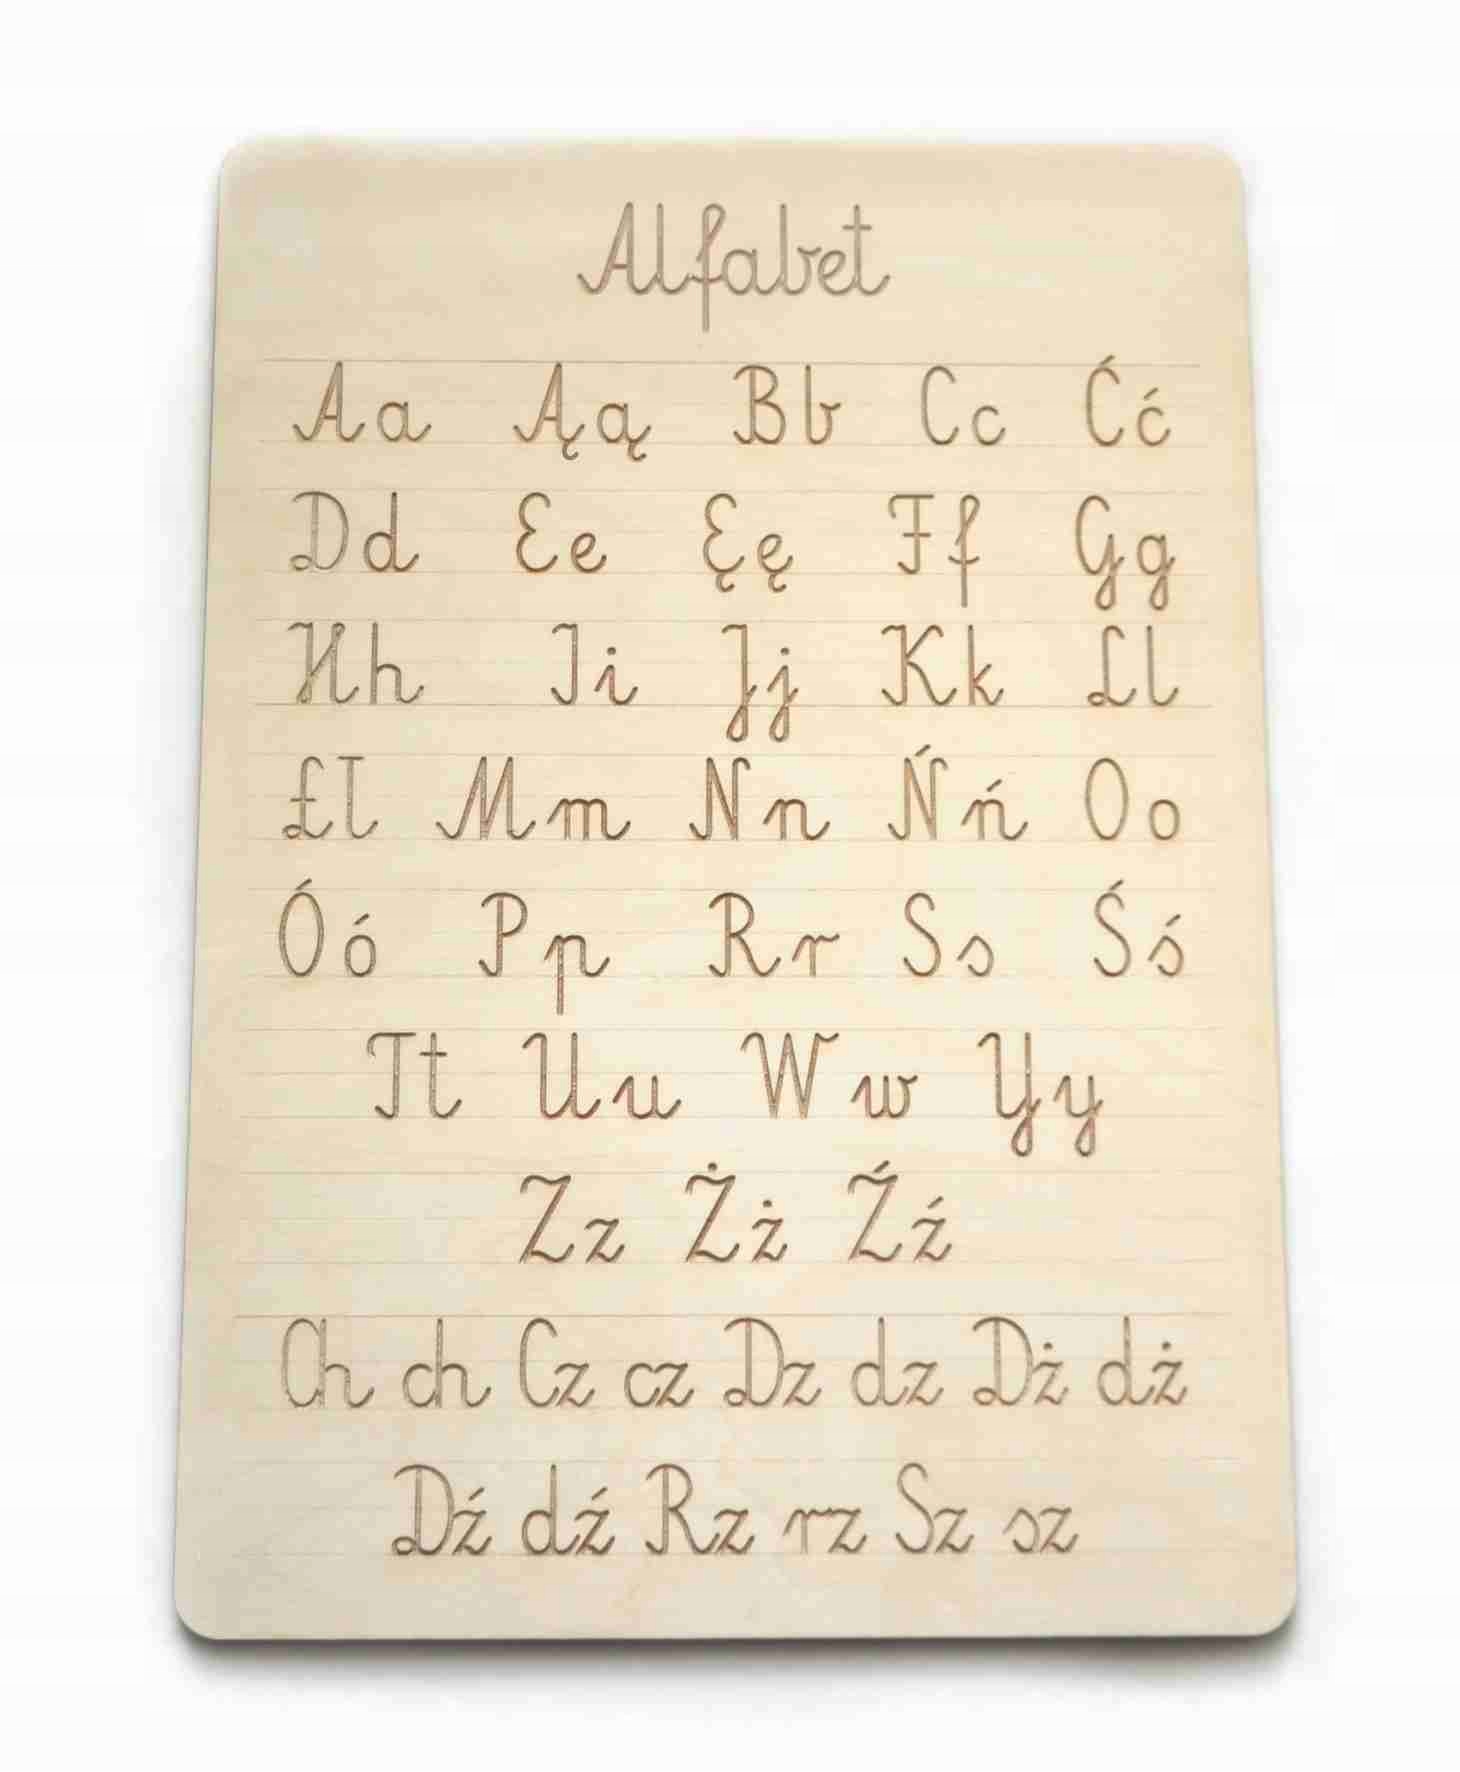 Alfabet
Aa Ąą Bb Cc Ćć
Dd Ee Ęę Ff Gg
Hh Ii Jj Kk Ll
Łł Mm Nn Ńń Oo
Óó Pp Rr Ss Śś
Tt Uu Ww Yy
Zz Żż Źź
Ch ch Cz cz Dz dz Dż dż
Dź dź Rz rz Sz sz